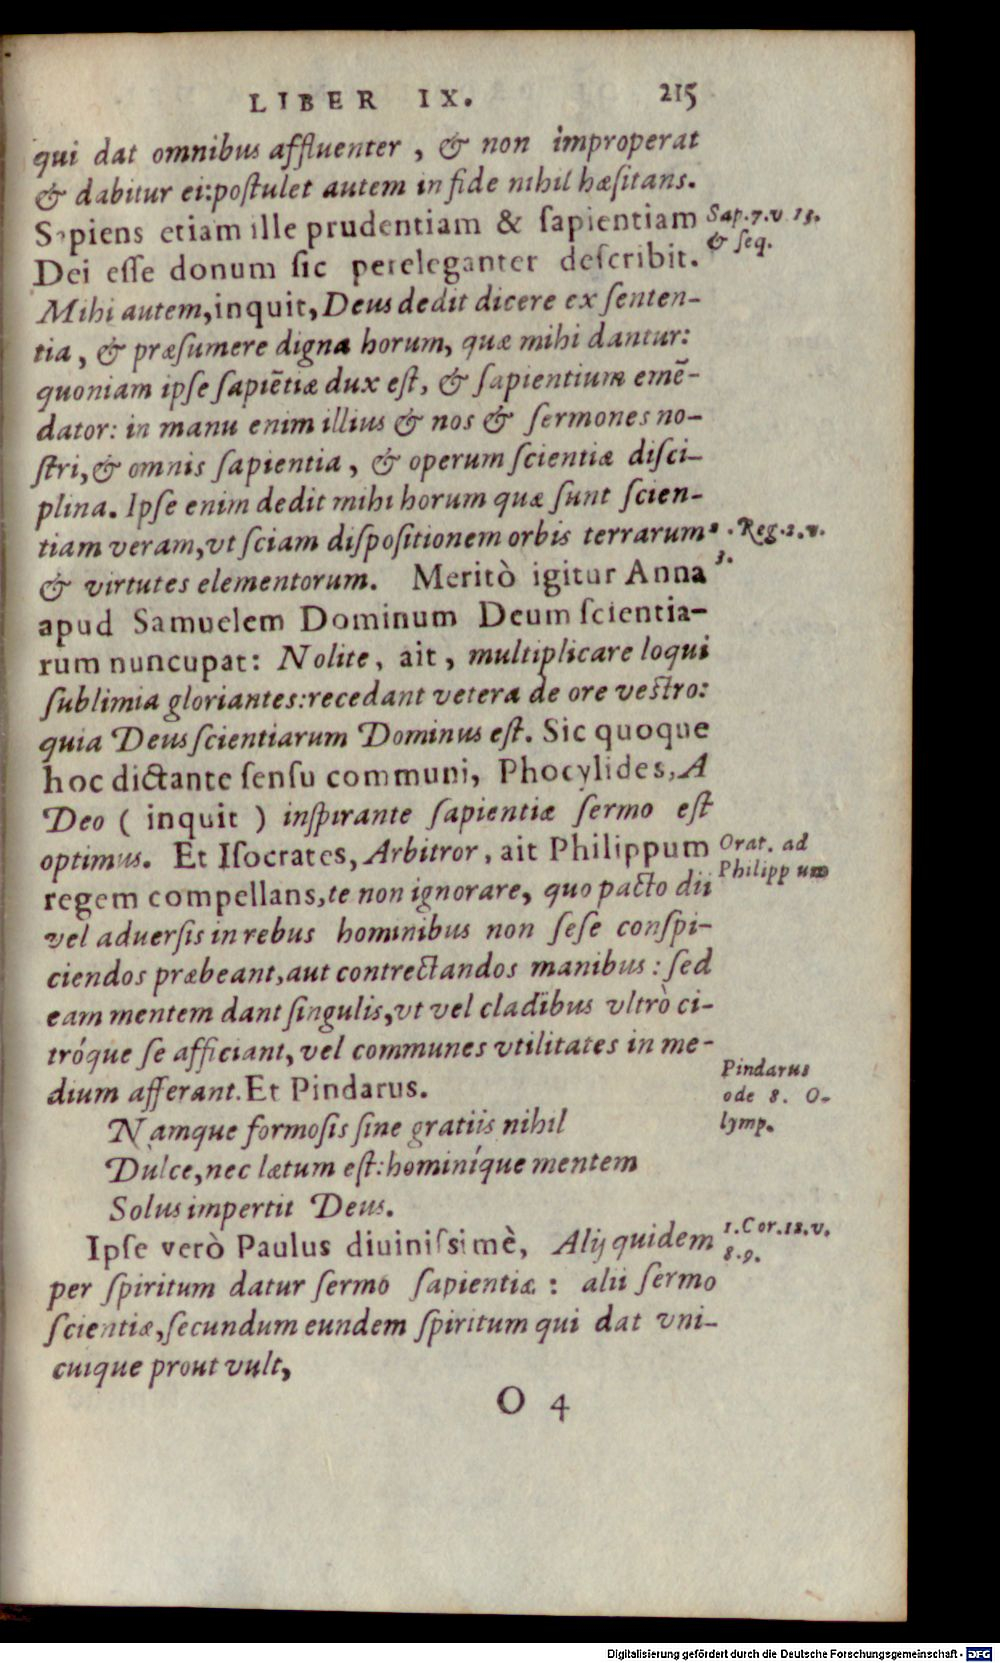 LIBER IX. 215
qui dat omnibus affluenter, & non improperat
& dabitur ei: poſtulet autem in fide nihil hæſitans.
Sapiens etiam ille prudentiam & ſapientiam
Sap. 7. v. 15.
& ſeq.
Dei eſſe donum ſic pereleganter deſcribit.
Mihi autem, inquit, Deus dedit dicere ex ſenten-
tia, & præſumere digna horum, quæ mihi dantur:
quoniam ipſe ſapiẽtiæ dux eſt, & ſapientium emẽ-
dator: in manu enim illius & nos & ſermones no-
ſtri, & omnis ſapientia, & operum ſcientiæ diſci-
plina. Ipſe enim dedit mihi horum quæ ſunt ſcien-
tiam veram, vt ſciam diſpoſitionem orbis terrarum
1. Reg. 2. v.
3.
& virtutes elementorum. Meritò igitur Anna
apud Samuelem Dominum Deum ſcientia-
rum nuncupat: Nolite, ait, multiplicare loqui
ſublimia gloriantes: recedant vetera de ore veſtro:
quia Deus ſcientiarum Dominus eſt. Sic quoque
hoc dictante ſenſu communi, Phocylides, A
Deo ( inquit ) inſpirante ſapientiæ ſermo eſt
optimus. Et Iſocrates, Arbitror, ait Philippum
Orat. ad
Philippum
regem compellans, te non ignorare, quo pacto dii
vel aduerſis in rebus hominibus non ſeſe conſpi-
ciendos præbeant, aut contrectandos manibus: ſed
eam mentem dant ſingulis, vt vel cladibus vltrò ci-
tróque ſe afficiant, vel communes vtilitates in me-
dium afferant. Et Pindarus.
Pindarus
ode 8. O-
lymp.
Namque formoſis ſine gratiis nihil
Dulce, nec lætum eſt: hominíque mentem
Solus impertit Deus.
Ipſe verò Paulus diuiniſsimè, Alij quidem
1. Cor. 12. v.
8. 9.
per ſpiritum datur ſermo ſapientiæ: alii ſermo
ſcientiæ, ſecundum eundem ſpiritum qui dat vni-
cuique prout vult,
O 4
Digitalisierung gefördert durch die Deutsche Forschungsgemeinschaft - DFG